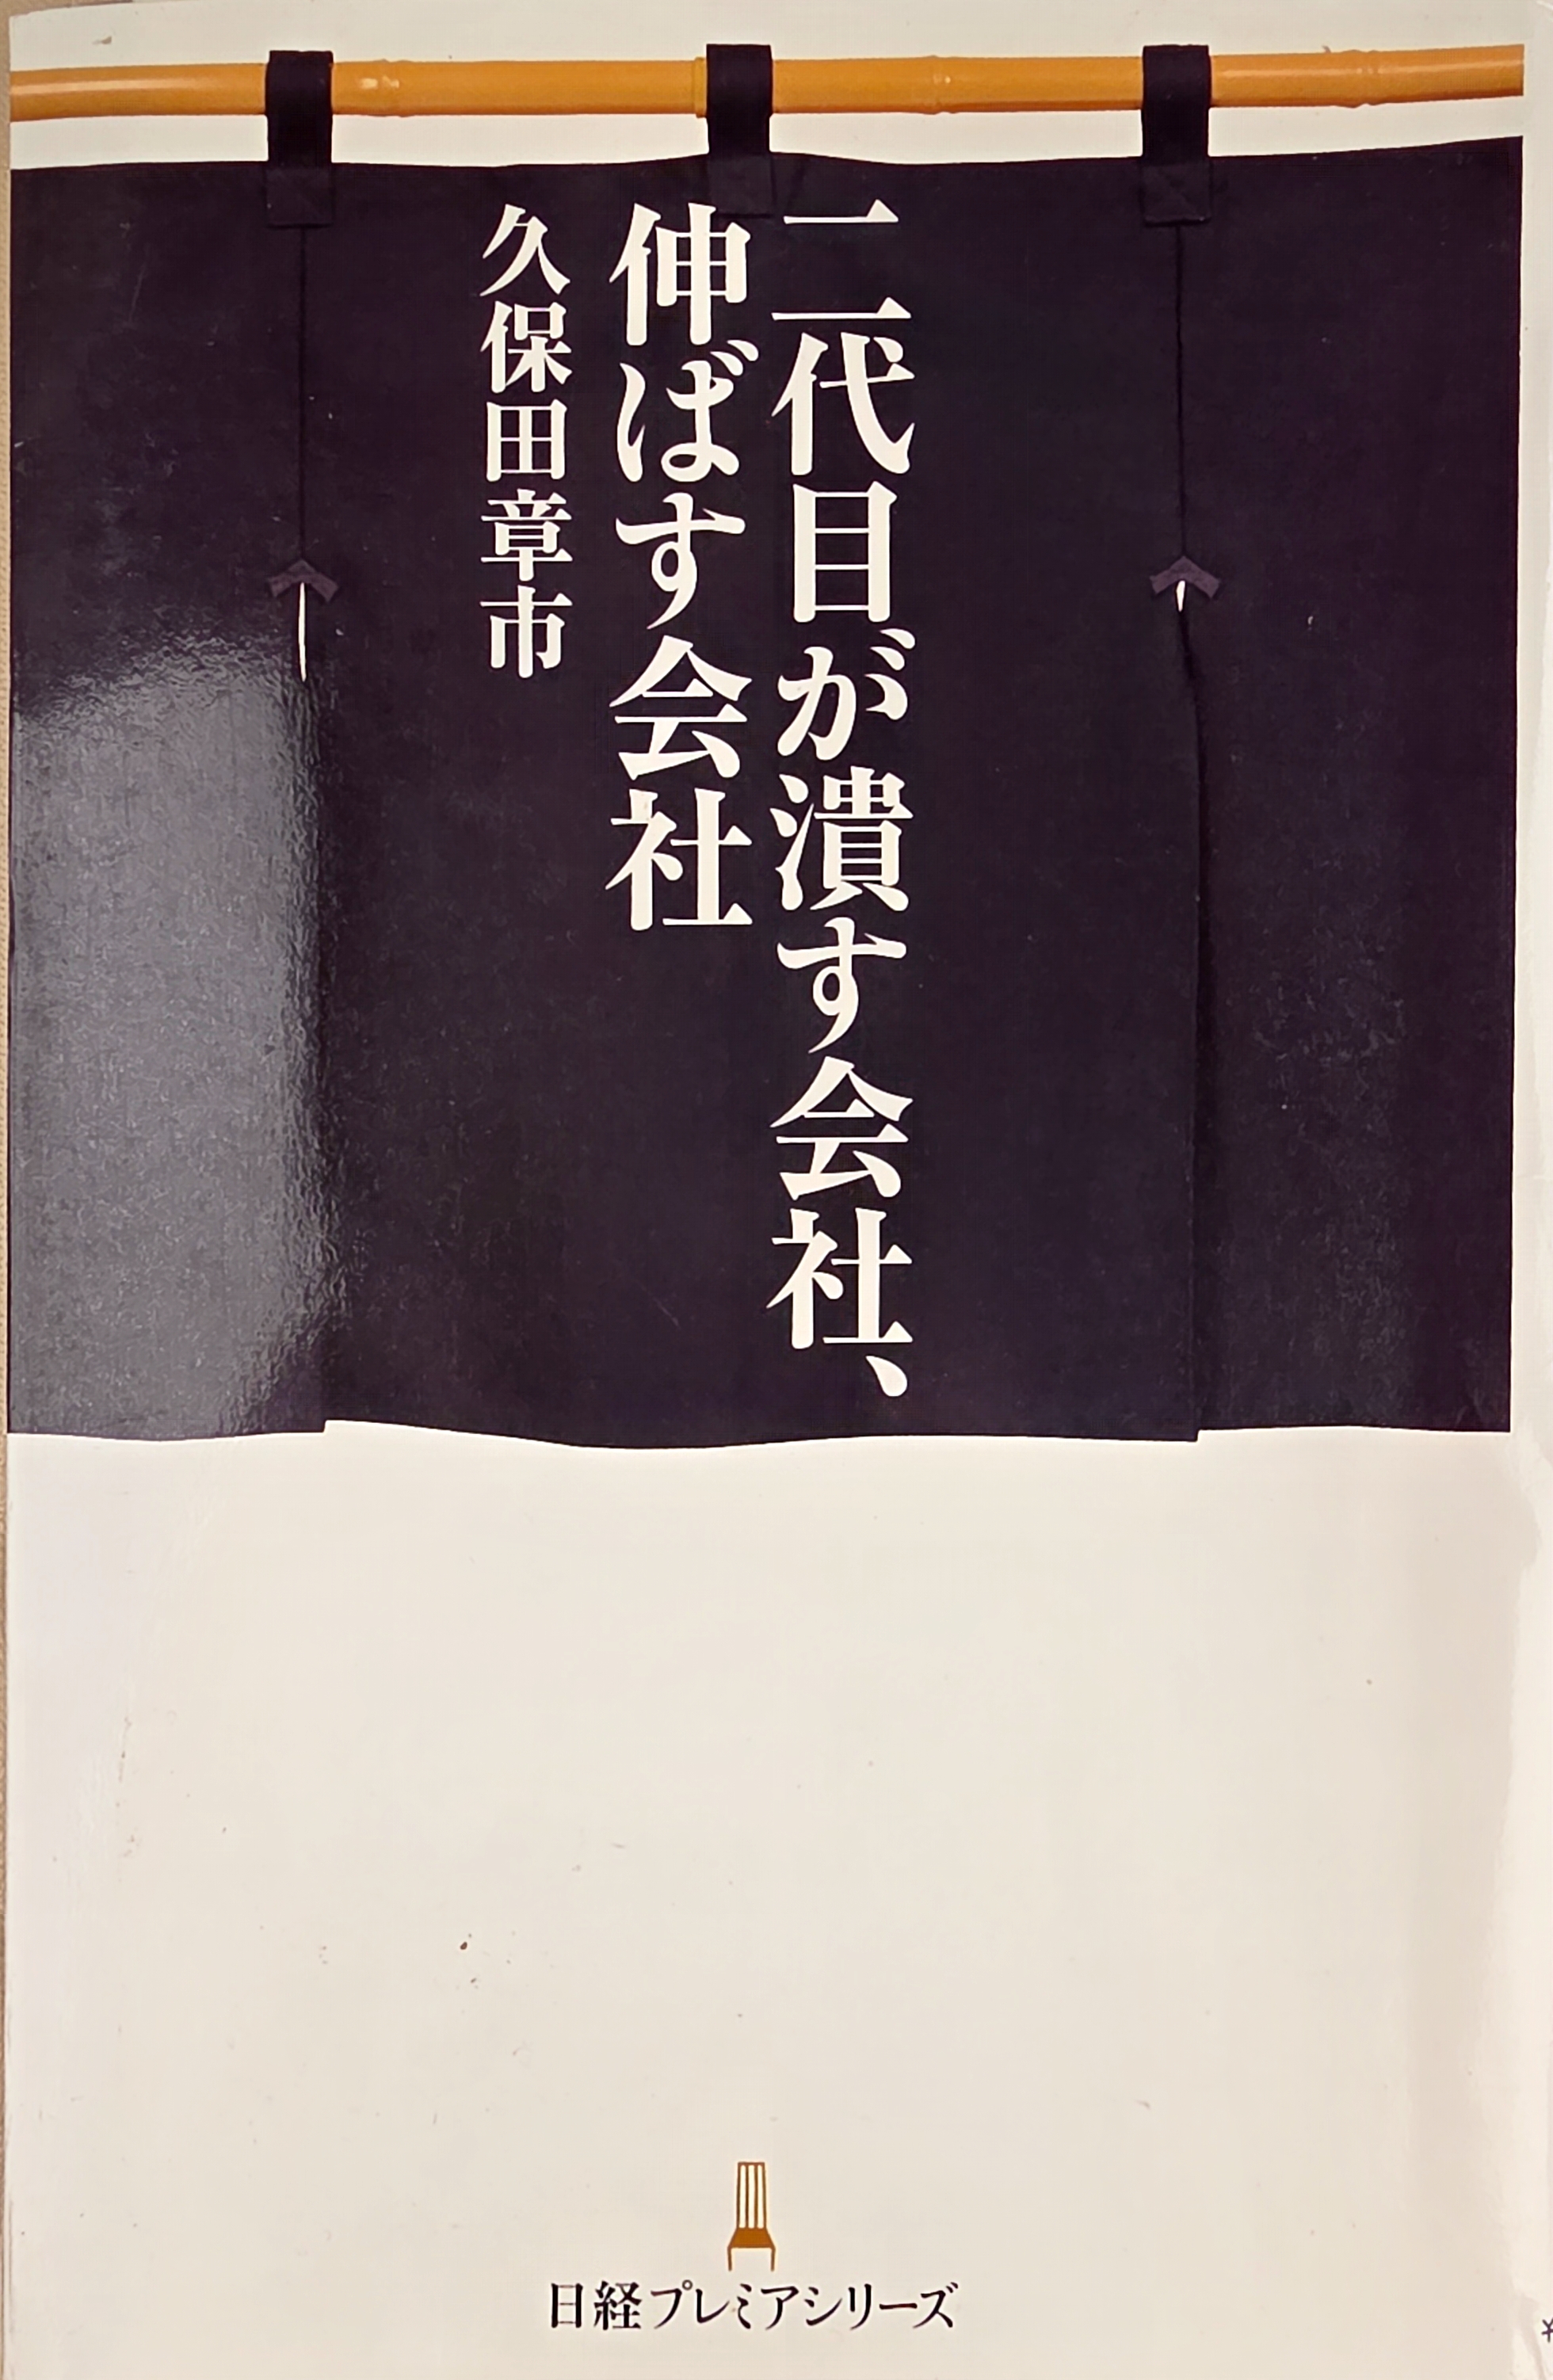 二代目が潰す会社、
伸ばす会社
久保田章市
日経プレミアシリーズ
¥